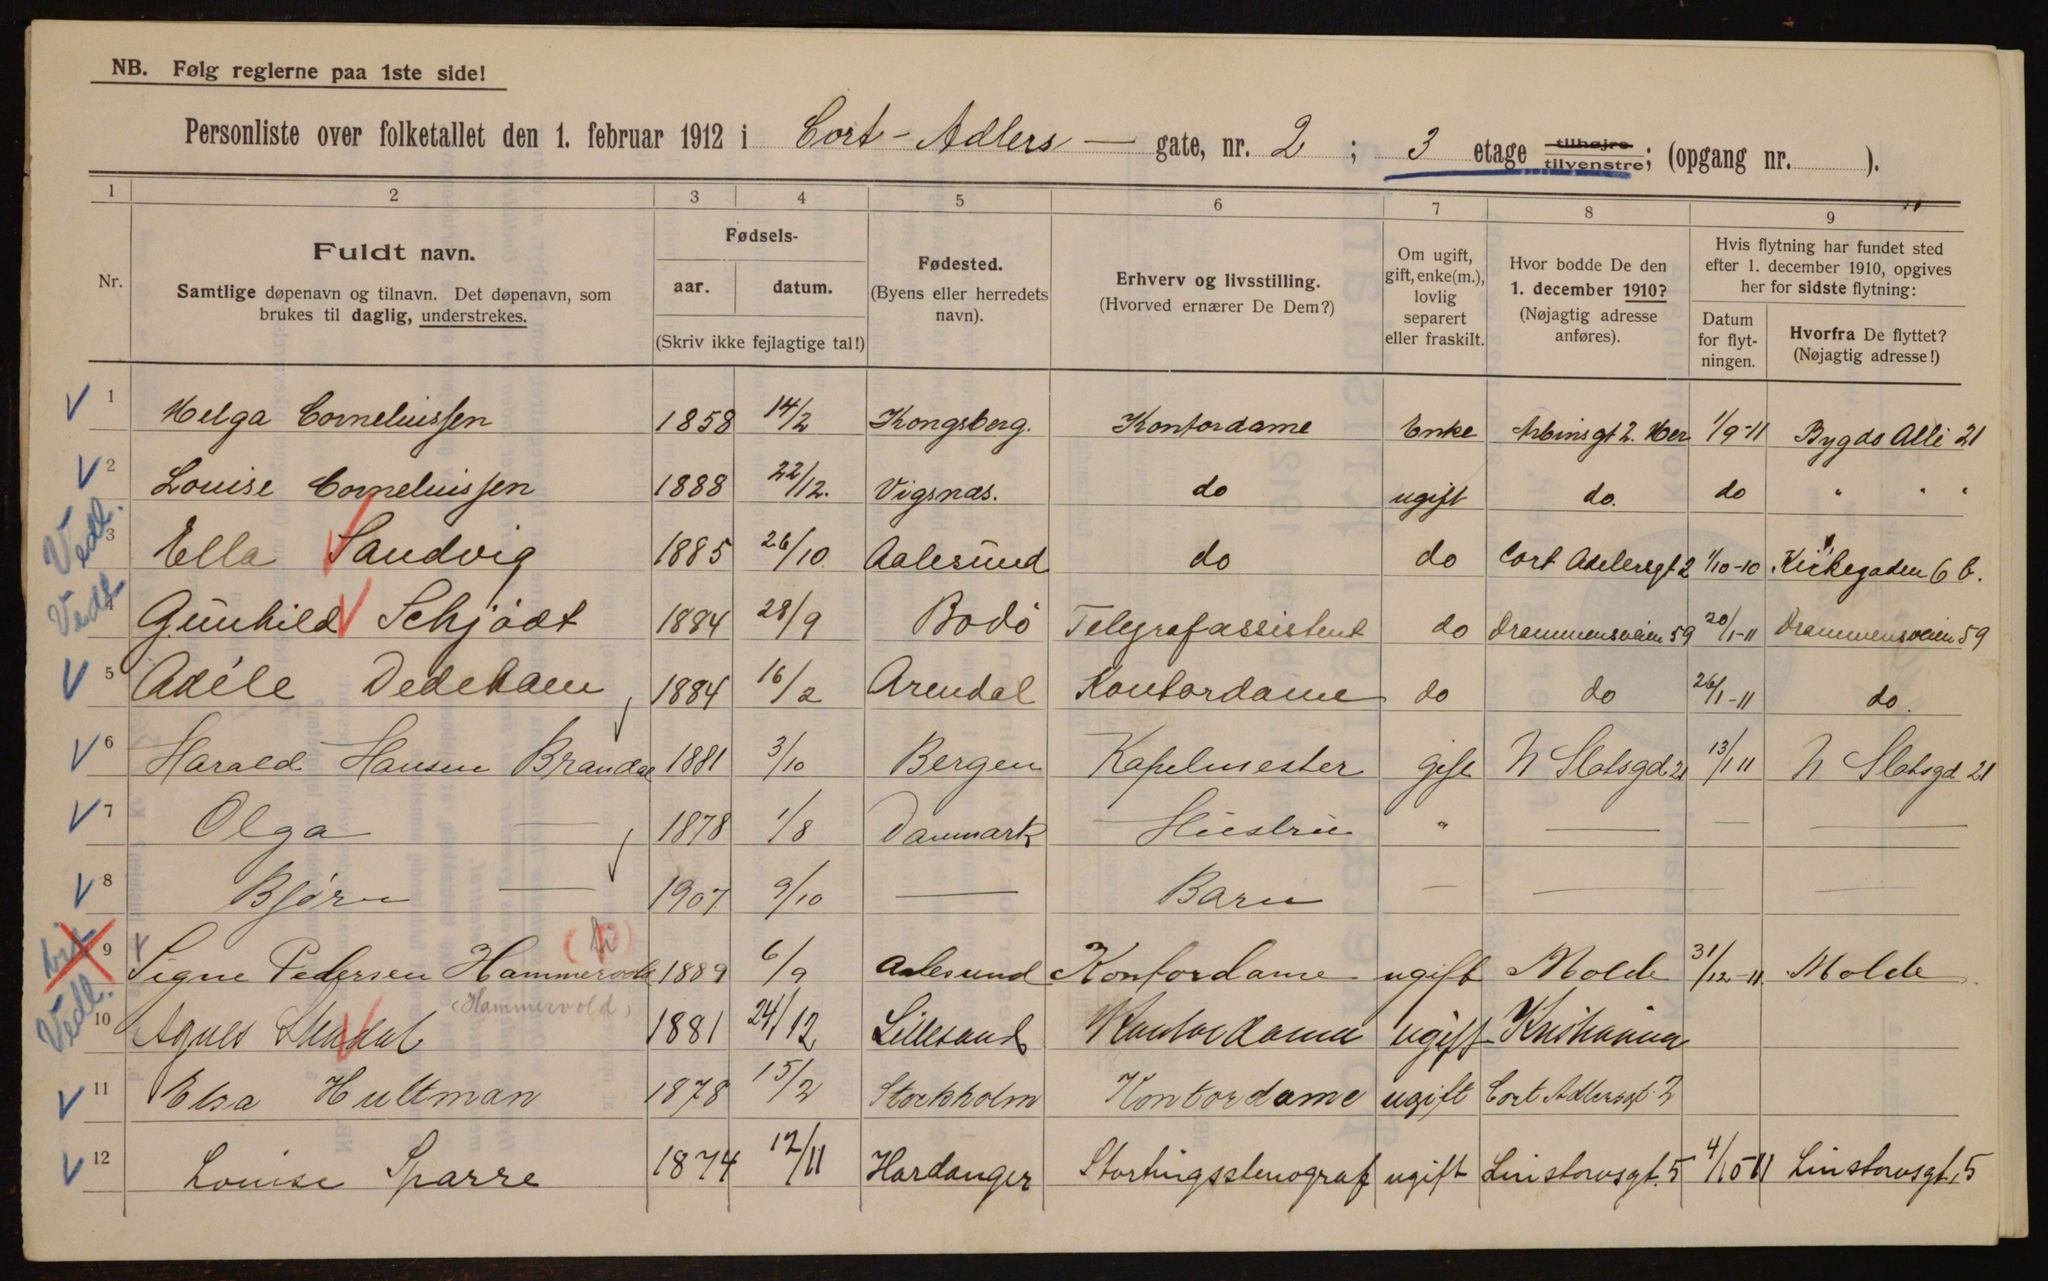 NB. Følg reglerne paa 1ste side!
Personliste over folketallet den 1. februar 1912 i Cort-Adlers — gate, nr. 2 ; 3 etage tilhøjre tilvenstre; (opgang nr. ).
1 2 3 4 5 6 7 8 9
Nr.
Fuldt navn.
Samtlige døpenavn og tilnavn. Det døpenavn, som
brukes til daglig, understrekes.
Fødsels-
aar. datum.
(Skriv ikke fejlagtige tal!)
Fødested.
(Byens eller herredets
navn).
Erhverv og livsstilling.
(Hvorved ernærer De Dem?)
Om ugift,
gift, enke(m.),
lovlig
separert
eller fraskilt.
Hvor bodde De den
1. december 1910?
(Nøjagtig adresse
anføres).
Hvis flytning har fundet sted
efter 1. december 1910, opgives
her for sidste flytning:
Datum
for flyt-
ningen.
Hvorfra De flyttet?
(Nøjagtig adresse!)
1 Helga Corneliussen 1858 14/2 Kongsberg. Kontordame Enke Arbinsgt 2. Her 1/9-11 Bygdø Alle 21
2 Louise Corneliussen 1888 22/12. Vigsnæs. do ugift do. do " " "
Vedl. 3 Ella Sandvig 1885 26/10 Aalesund do do Cort Adelersgt 2 1/10-10 Kirkegaden 6 b.
Vedl. 4 Gunhild Schjødt 1884 28/9 Bodø Telegrafassistent do Drammensveien 59 20/1-11 Drammensveien 59
5 Adéle Dedekam 1884 16/2 Arendal Kontordame do do 26/1-11 do.
6 Harald Hansen Brandal 1881 3/10 Bergen Kapelmester gift N Slotsgd. 21 13/1 11 N Slotsgd 21
7 Olga — 1878 1/8 Danmark Hustru " — — —
8 Bjørn — 1907 9/10 — Barn — — — —
9 Signe Pedersen Hammervold 1889 6/9 Aalesund Kontordame ugift Molde 31/12-11 Molde
(Hammervold)
Vedl. 10 Agnes 1881 24/12 Lillesand Kontordame ugift Kristiania
11 Elsa Hultman 1878 15/2 Stockholm Kontordame ugift Cort Adlersgt. 2
12 Louise Sparre 1874 12/11 Hardanger Stortingsstenograf ugift Linstowsgt. 5 4/10-11 Linstowsgt. 5